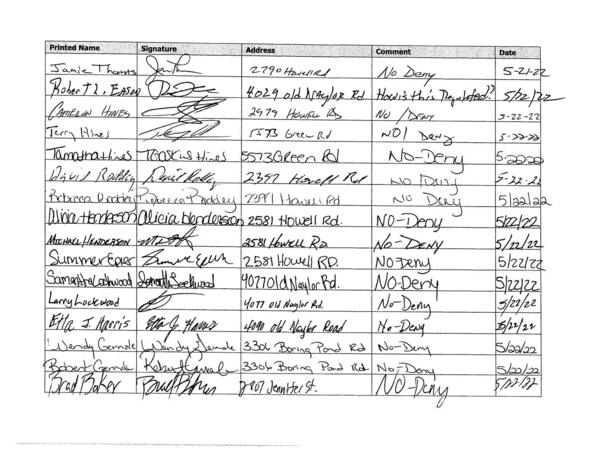 Printed Name Signature Address Comment Date
Jamie Thomas 2790 Howell Rd No Deny 5-21-22
Robert L. Eason 4029 old Naylor Rd How is this Regulated? 5/22/22
Cameron Hines 2979 Howell Rd No / Deny 5-22-22
Terry Hines 5573 Green Rd NO! Deny 5-22-22
Tamatha Hines Hines 5573 Green Rd No-Deny 5-22-22
David David 2397 Howell Rd No / Deny 5-22-22
Rebecca Rebecca Howell Rd No Deny 5/22/22
Alicia Henderson Alicia Henderson 2581 Howell Rd. NO-Deny 5/22/22
Michael Henderson 2581 Howell Rd No-Deny 5/22/22
Summer Summer 2581 Howell RD. NO Deny 5/22/22
Samantha Lockwood Samantha Lockwood 4077 Old Naylor Rd. NO-Deny 5/22/22
Larry Lockwood 4077 Old Naylor Rd. No-Deny 5/22/22
Etta J. Harris Etta J. Harris 4090 old Naylor Road No-Deny 5/22/22
Wendy Wendy 3306 Boring Pond Rd No-Deny 5/22/22
Robert Robert 3306 Boring Pond Rd No-Deny 5/22/22
Brad Baker Brad Jennifer St. NO-Deny 5/22/22